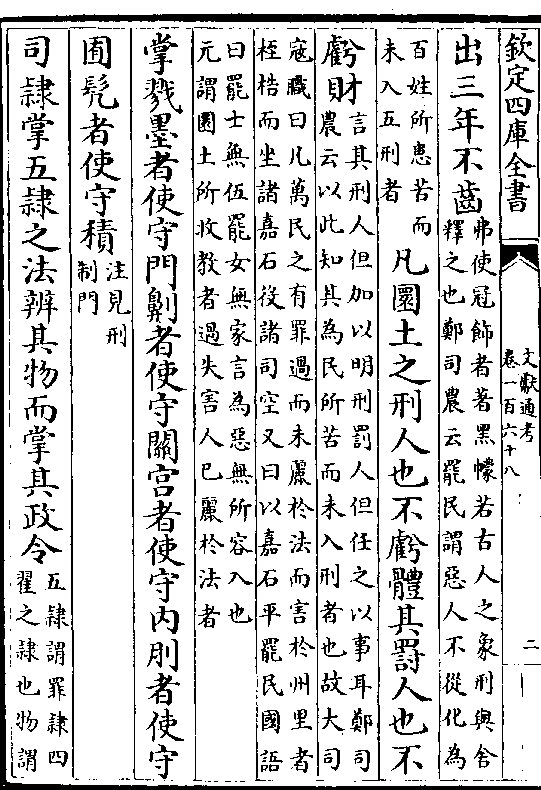 欽定四庫全書
文獻通考
卷一百六十八
二
出三年不齒
弗使冠飾者著黑幪若古人之象刑與舍
釋之也鄭司農云罷民謂惡人不從化為
百姓所患苦而
未入五刑者
凡圜土之刑人也不虧體其罰人也不
虧財
言其刑人但加以明刑罰人但任之以事耳鄭司
農云以此知其為民所苦而未入刑者也故大司
寇職曰凡萬民之有罪過而未麗於法而害於州里者
桎梏而坐諸嘉石役諸司空又曰以嘉石平罷民國語
曰罷士無伍罷女無家言為惡無所容入也
元謂圜土所收教者過失害人已麗於法者
掌戮墨者使守門劓者使守關宫者使守内刖者使守
囿髠者使守積
注見刑
制門
司隷掌五隷之法辨其物而掌其政令
五隷謂罪隷四
翟之隷也物謂